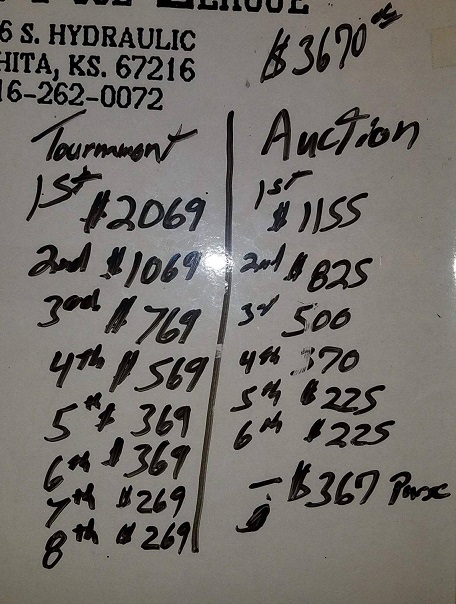 6 S. HYDRAULIC
HITA, KS. 67216
16-262-0072
$3670
Tournment
1st $2069
2nd $1069
3rd $769
4th $569
5th $369
6th $369
7th $269
8th $269
Auction
1st $1155
2nd $825
3rd 500
4th 370
5th $225
6th $225
- $367 Purse